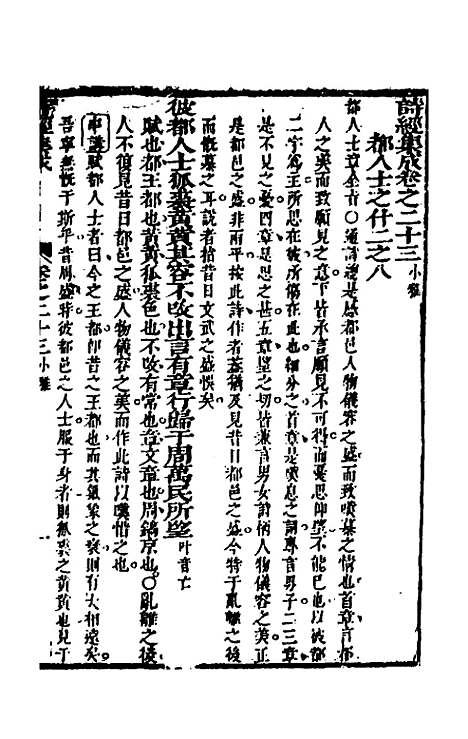 詩經集成卷之二十三 小雅
都人士之什二之八
都人士章全旨〇通詩總是思都邑人物儀容之盛而致嘆慕之情也首章言都
人之美而致願見之意下皆承言願見不可得而憂思仰望不能已也以彼都
二字為主所思在彼所傷在此也細分之首章是嘆息之詞專言男子二三章
是不見之憂四章是思之甚五章望之切皆兼言男女詩柄人物儀容之美正
是都邑之盛非兩平按此詩作者蓋猶及見昔日都邑之盛今特于亂離之後
而慨慕之耳說者拾昔日文武之盛悞矣
彼都人士狐裘黃黃其容不改出言有章行歸于周萬民所望 叶音亡
賦也都王都也黃黃狐裘色也不改有常也章文章也周鎬京也〇亂離之後
人不復見昔日都邑之盛人物儀容之美而作此詩以嘆惜之也
申講賦都人士者曰今之王都即昔之王都也而其氣象之衰則有大相遠矣
吾寧無慨于斯乎昔周盛時彼都邑之人士服于身者則狐裘之黃黃也見于
詩經集成 卷之二十三 小雅 一